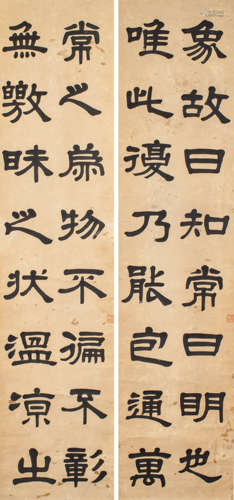 常之爲物不偏不彰
無皦昧之狀溫涼之
象故曰知常曰明也
唯此復乃能包通萬